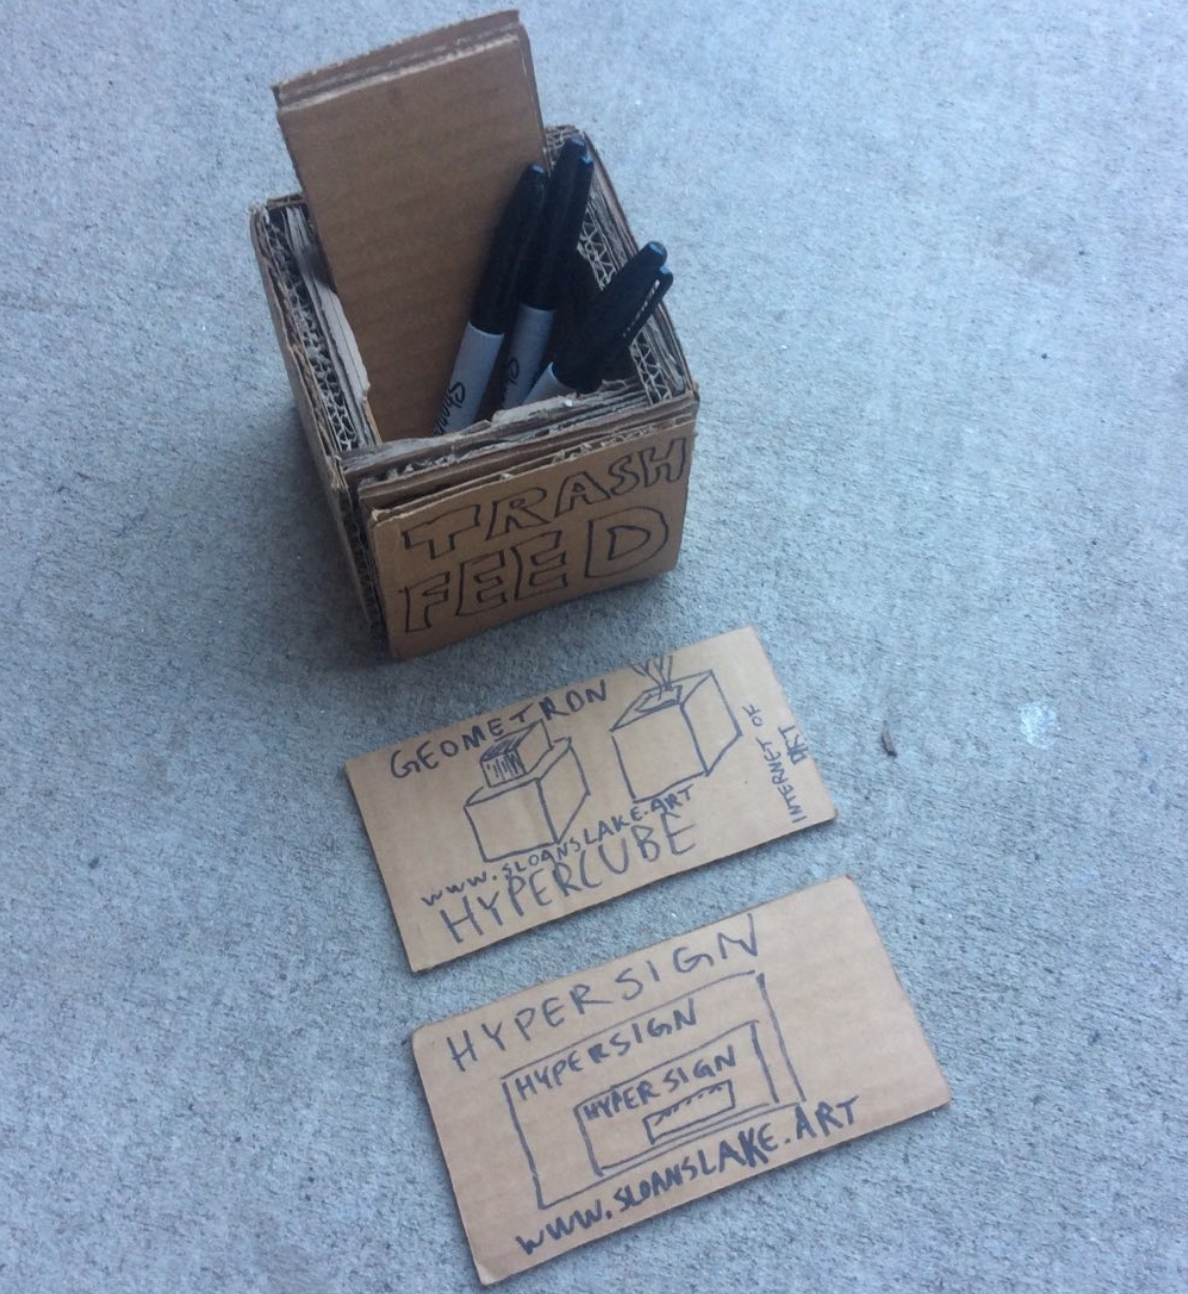 Sharpie
TRASH
FEED
GEOMETRON
INTERNET OF
ART
WWW.SLOANSLAKE.ART
HYPERCUBE
HYPERSIGN
HYPERSIGN
HYPERSIGN
WWW.SLOANSLAKE.ART